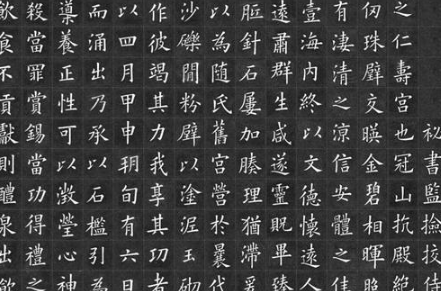 秘書監撿挍侍
之仁壽宮也冠山抗殿絶
仞珠璧交暎金碧相暉照
有淒清之涼信安體之佳
壹海內終以文德懷遠人
遠肅群生咸遂靈貺畢臻
胝針石屢加腠理猶滯爰
以為隨氏舊宮營於曩代
沙礫間粉壁以塗泥玉砌
作彼竭其力我享其功者
以四月甲申朔旬有六日
而涌出乃承以石檻引為
導養正性可以澂瑩心神
殺當罪賞錫當功得禮之
飲食不貢獻則醴泉出飲